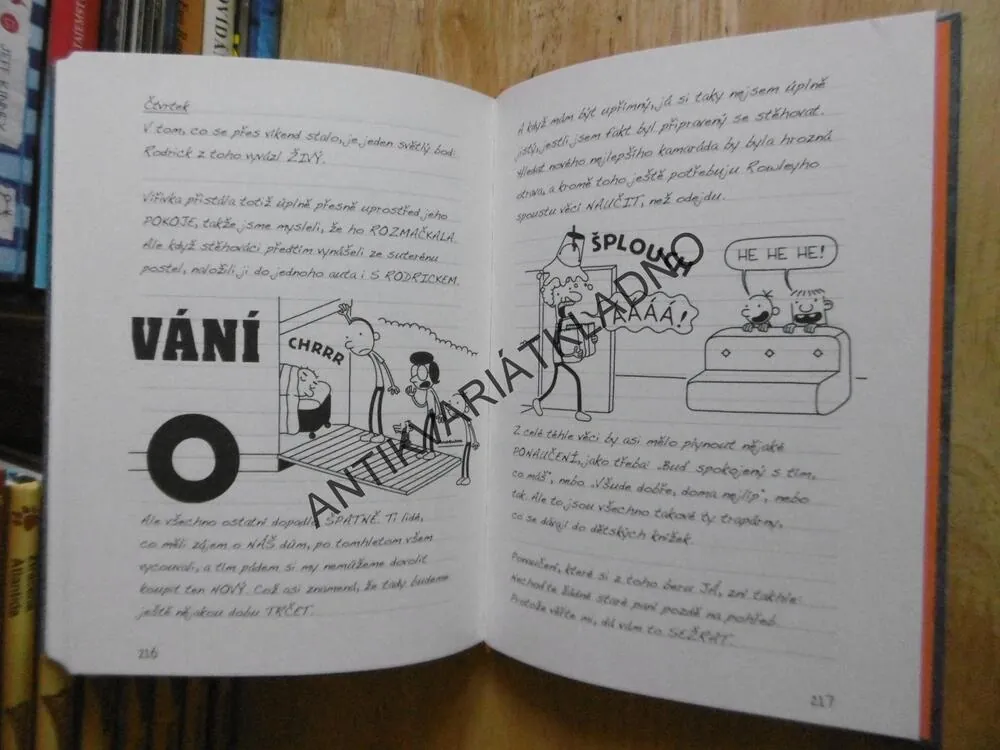 Čtvrtek
V tom, co se přes víkend stalo, je jeden světlý bod:
Rodrick z toho vyvázl ŽIVÝ.
Vířivka přistála totiž úplně přesně uprostřed jeho
POKOJE, takže jsme mysleli, že ho ROZMAČKALA.
Ale když stěhováci předtím vynášeli ze suterénu
postel, naložili ji do jednoho auta i S RODRICKEM.
VÁNÍ
CHRRR
Ale všechno ostatní dopadlo ŠPATNĚ. Ti lidé,
co měli zájem o NÁŠ dům, po tomhletom všem
vycouvali, a tím pádem si my nemůžeme dovolit
koupit ten NOVÝ. Což asi znamená, že tady budeme
ještě nějakou dobu TRČET.
216
A když mám být upřímný, já si taky nejsem úplně
jistý, jestli jsem fakt byl připravený se stěhovat.
Hledat nového nejlepšího kamaráda by byla hrozná
otrava, a kromě toho ještě potřebuju Rowleyho
spoustu věcí NAUČIT, než odejdu.
ŠPLOUCH
HE HE HE!
ÁÁÁÁ!
Z celé téhle věci by asi mělo plynout nějaké
PONAUČENÍ, jako třeba: „Buď spokojený s tím,
co máš“, nebo „Všude dobře, doma nejlíp“, nebo
tak. Ale to jsou všechno takové ty trapárny,
co se dávají do dětských knížek.
Ponaučení, které si z toho beru JÁ, zní takhle:
Nechoďte žádné staré paní pozdě na pohřeb.
Protože věřte mi, dá vám to SEŽRAT.
217
ANTIKVARIÁTKLADNO